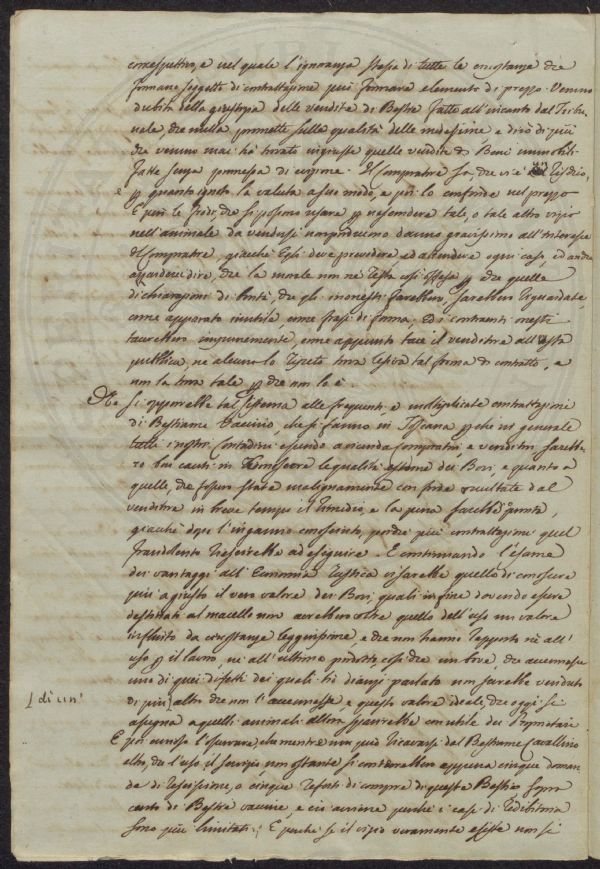 corrispettivo, e nel quale l'ignoranza stessa di tutte le circostanze che
formano soggetto di contrattazione può formare elemento di prezzo. Veruno
dubita della giustizia delle vendite di Bestie fatte all'incanto dal Tribu-
nale, che nulla promette sulla qualità delle medesime e dirò di più
che veruno mai ha trovato ingiuste quelle vendite di Beni immobili
fatte senza promessa di evizione. Il Compratore sa, che vi è
e p quanto ignoto lo valuta a suo modo, e poi lo confonde nel prezzo
E più le frodi, che si possono usare p nascondere tale, o tale altro vizio
nell'animale da vendersi non producono danno gravissimo all'interesse
Compratore, giacché Egli deve prevedere ed attendere ogni caso, ed anche
dire, che la morale non ne resta così offesa p che quelle
dichiarazioni di bontà, che gli inonesti farebbero, sarebbero riguardate,
come apparato inutile come frasi di forma; Ed i contraenti onesti
tacerebbero impunemente, come appunto tace il venditore all'asta
pubblica, ne alcuno lo reputa tal forma di contratto, e
non la trova tale p che non lo è.
Ne si opporrebbe tal sistema alle frequenti, e moltiplicate contrattazioni
di Bestiame Vaccino, che si fanno in Toscana p che in generale
tutti i nostri Contadini essendo a vicenda Compratori e venditori sarebbe-
ro ben cauti in conoscere le qualità esterne dei Bovi, e quanto a
quelle, che fossero state malignamente con frode occultate dal
venditore in breve tempo il rimedio, e la pena sarebbe pronta,
giacché dopo l'inganno conosciuto, poche più contrattazioni quel
fraudolento riescirebbe ad eseguire. E continuando l'esame
dei vantaggi all'Economia rustica vi sarebbe quello di conoscere
più a giusto il vero valore dei Bovi, quali in fine dovendo essere
destinati al macello non avrebbero oltre quello dell'uso un valore
da circostanze leggerissime, e che non hanno rapporto nè all'
uso p il lavoro, ne all'ultimo prodotto, così che un bove, che avesse
uno di quei difetti dei quali hò dianzi parlato non sarebbe venduto
di più
di un'
altro che non l'avesse e questo valore ideale, che oggi si
assegna a quelli animali allora sparirebbe con utile dei Proprietari
E poi curioso l'osservare, che mentre non può ricavarsi dal Bestiame Cavallino
altro, che l'uso il servizio, non ostante si conterebbero appena cinque doman-
de di rescissione, o cinque refusi di compre di queste Bestie sopra
cento di Bestie vaccine, e ciò avviene perché i casi di redibitoria
sono più limitati; E perché se il vizio veramente esiste non si